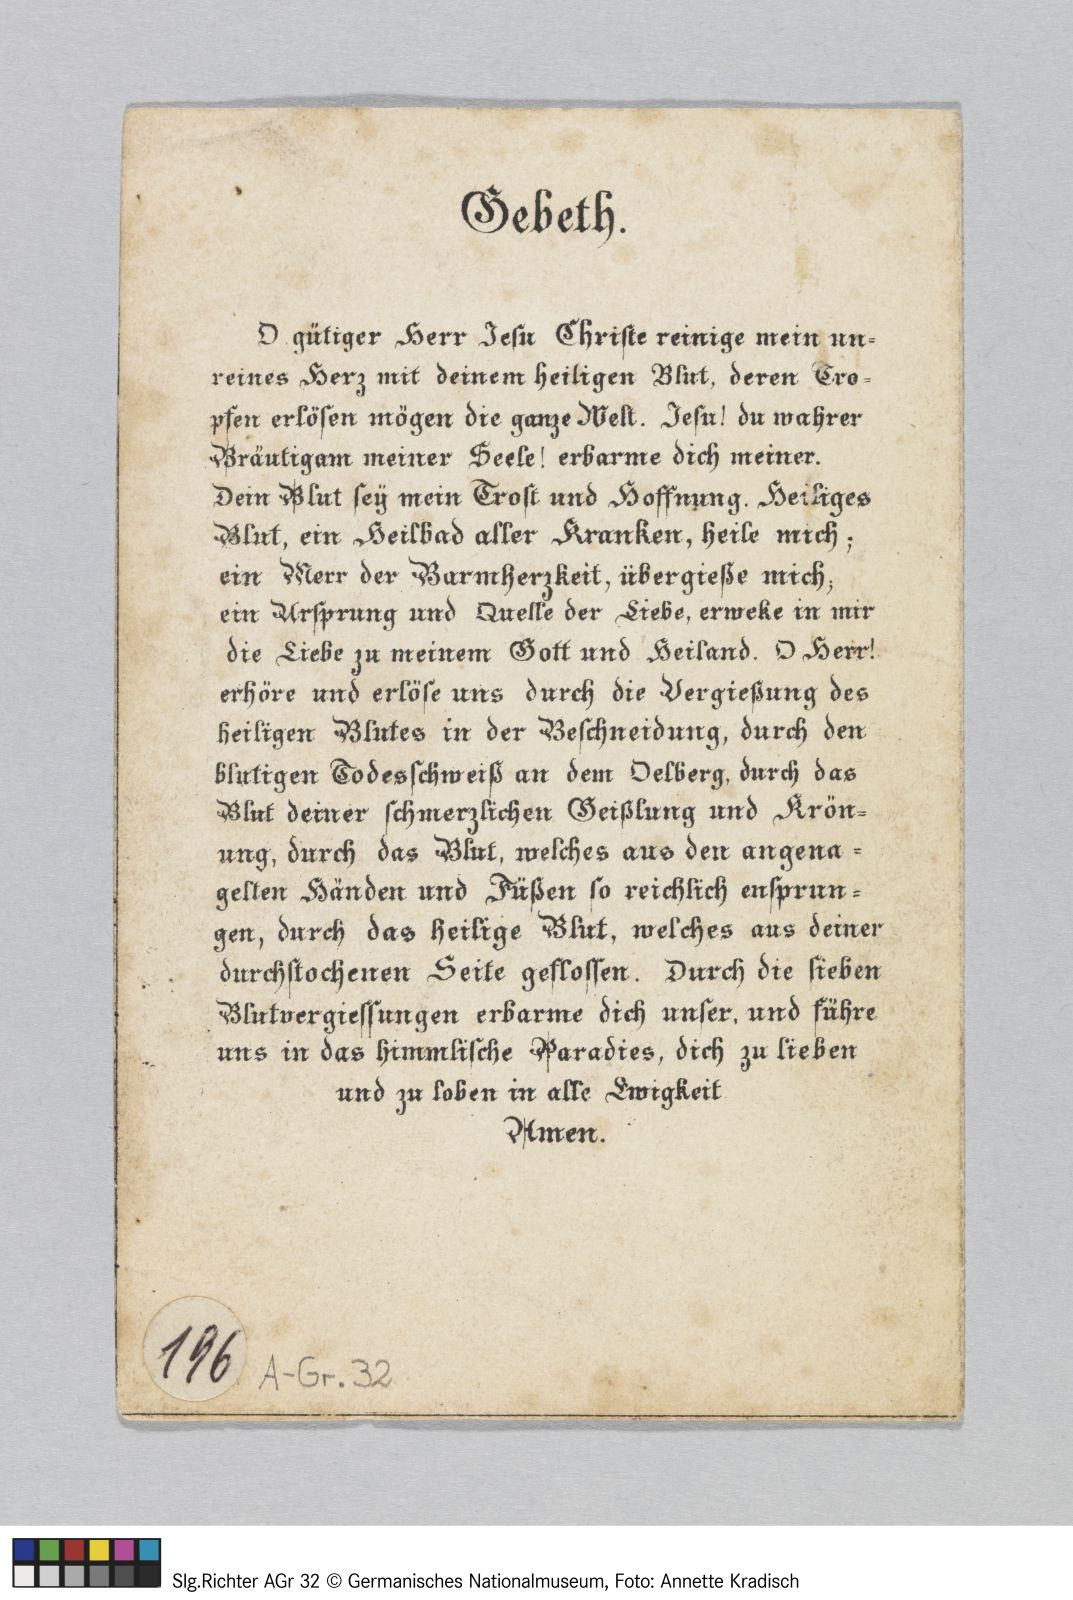 Gebeth.
O gütiger Herr Jesu Christe reinige mein un-
reines Herz mit deinem heiligen Blut, deren Tro-
pfen erlösen mögen die ganze Welt. Jesu! du wahrer
Bräutigam meiner Seele! erbarme dich meiner.
Dein Blut seÿ mein Trost und Hoffnung. Heiliges
Blut, ein Heilbad aller Kranken, heile mich;
ein Merr der Barmherzkeit, übergieße mich;
ein Ursprung und Quelle der Liebe, erweke in mir
die Liebe zu meinem Gott und Heiland. O Herr!
erhöre und erlöse uns durch die Vergießung des
heiligen Blutes in der Beschneidung, durch den
blutigen Todesschweiß an dem Oelberg, durch das
Blut deiner schmerzlichen Geißlung und Krön-
ung, durch das Blut, welches aus den angena-
gelten Händen und Füßen so reichlich ensprun-
gen, durch das heilige Blut, welches aus deiner
durchstochenen Seite geflossen. Durch die sieben
Blutvergiessungen erbarme dich unser, und führe
uns in das himmlische Paradies, dich zu lieben
und zu loben in alle Ewigkeit
Amen.
196
A-Gr. 32
Slg.Richter AGr 32 © Germanisches Nationalmuseum, Foto: Annette Kradisch